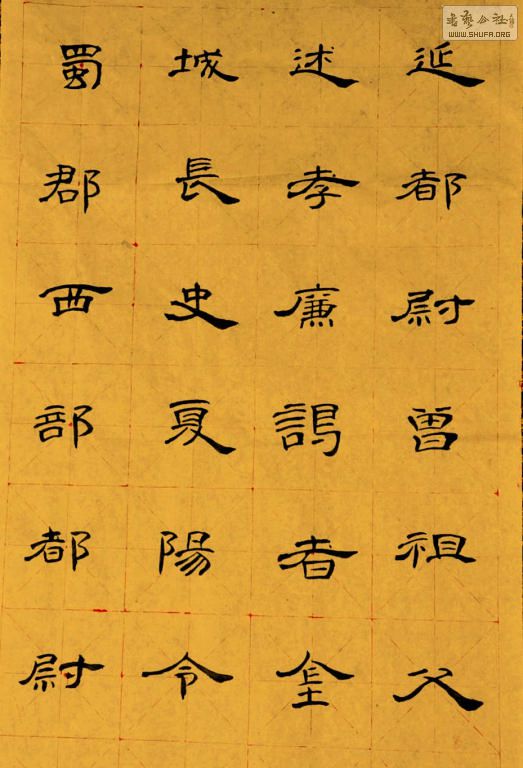 延都尉曾祖父
述孝廉謁者金
城長史夏陽令
蜀郡西部都尉
書藝公社
WWW.SHUFA.ORG